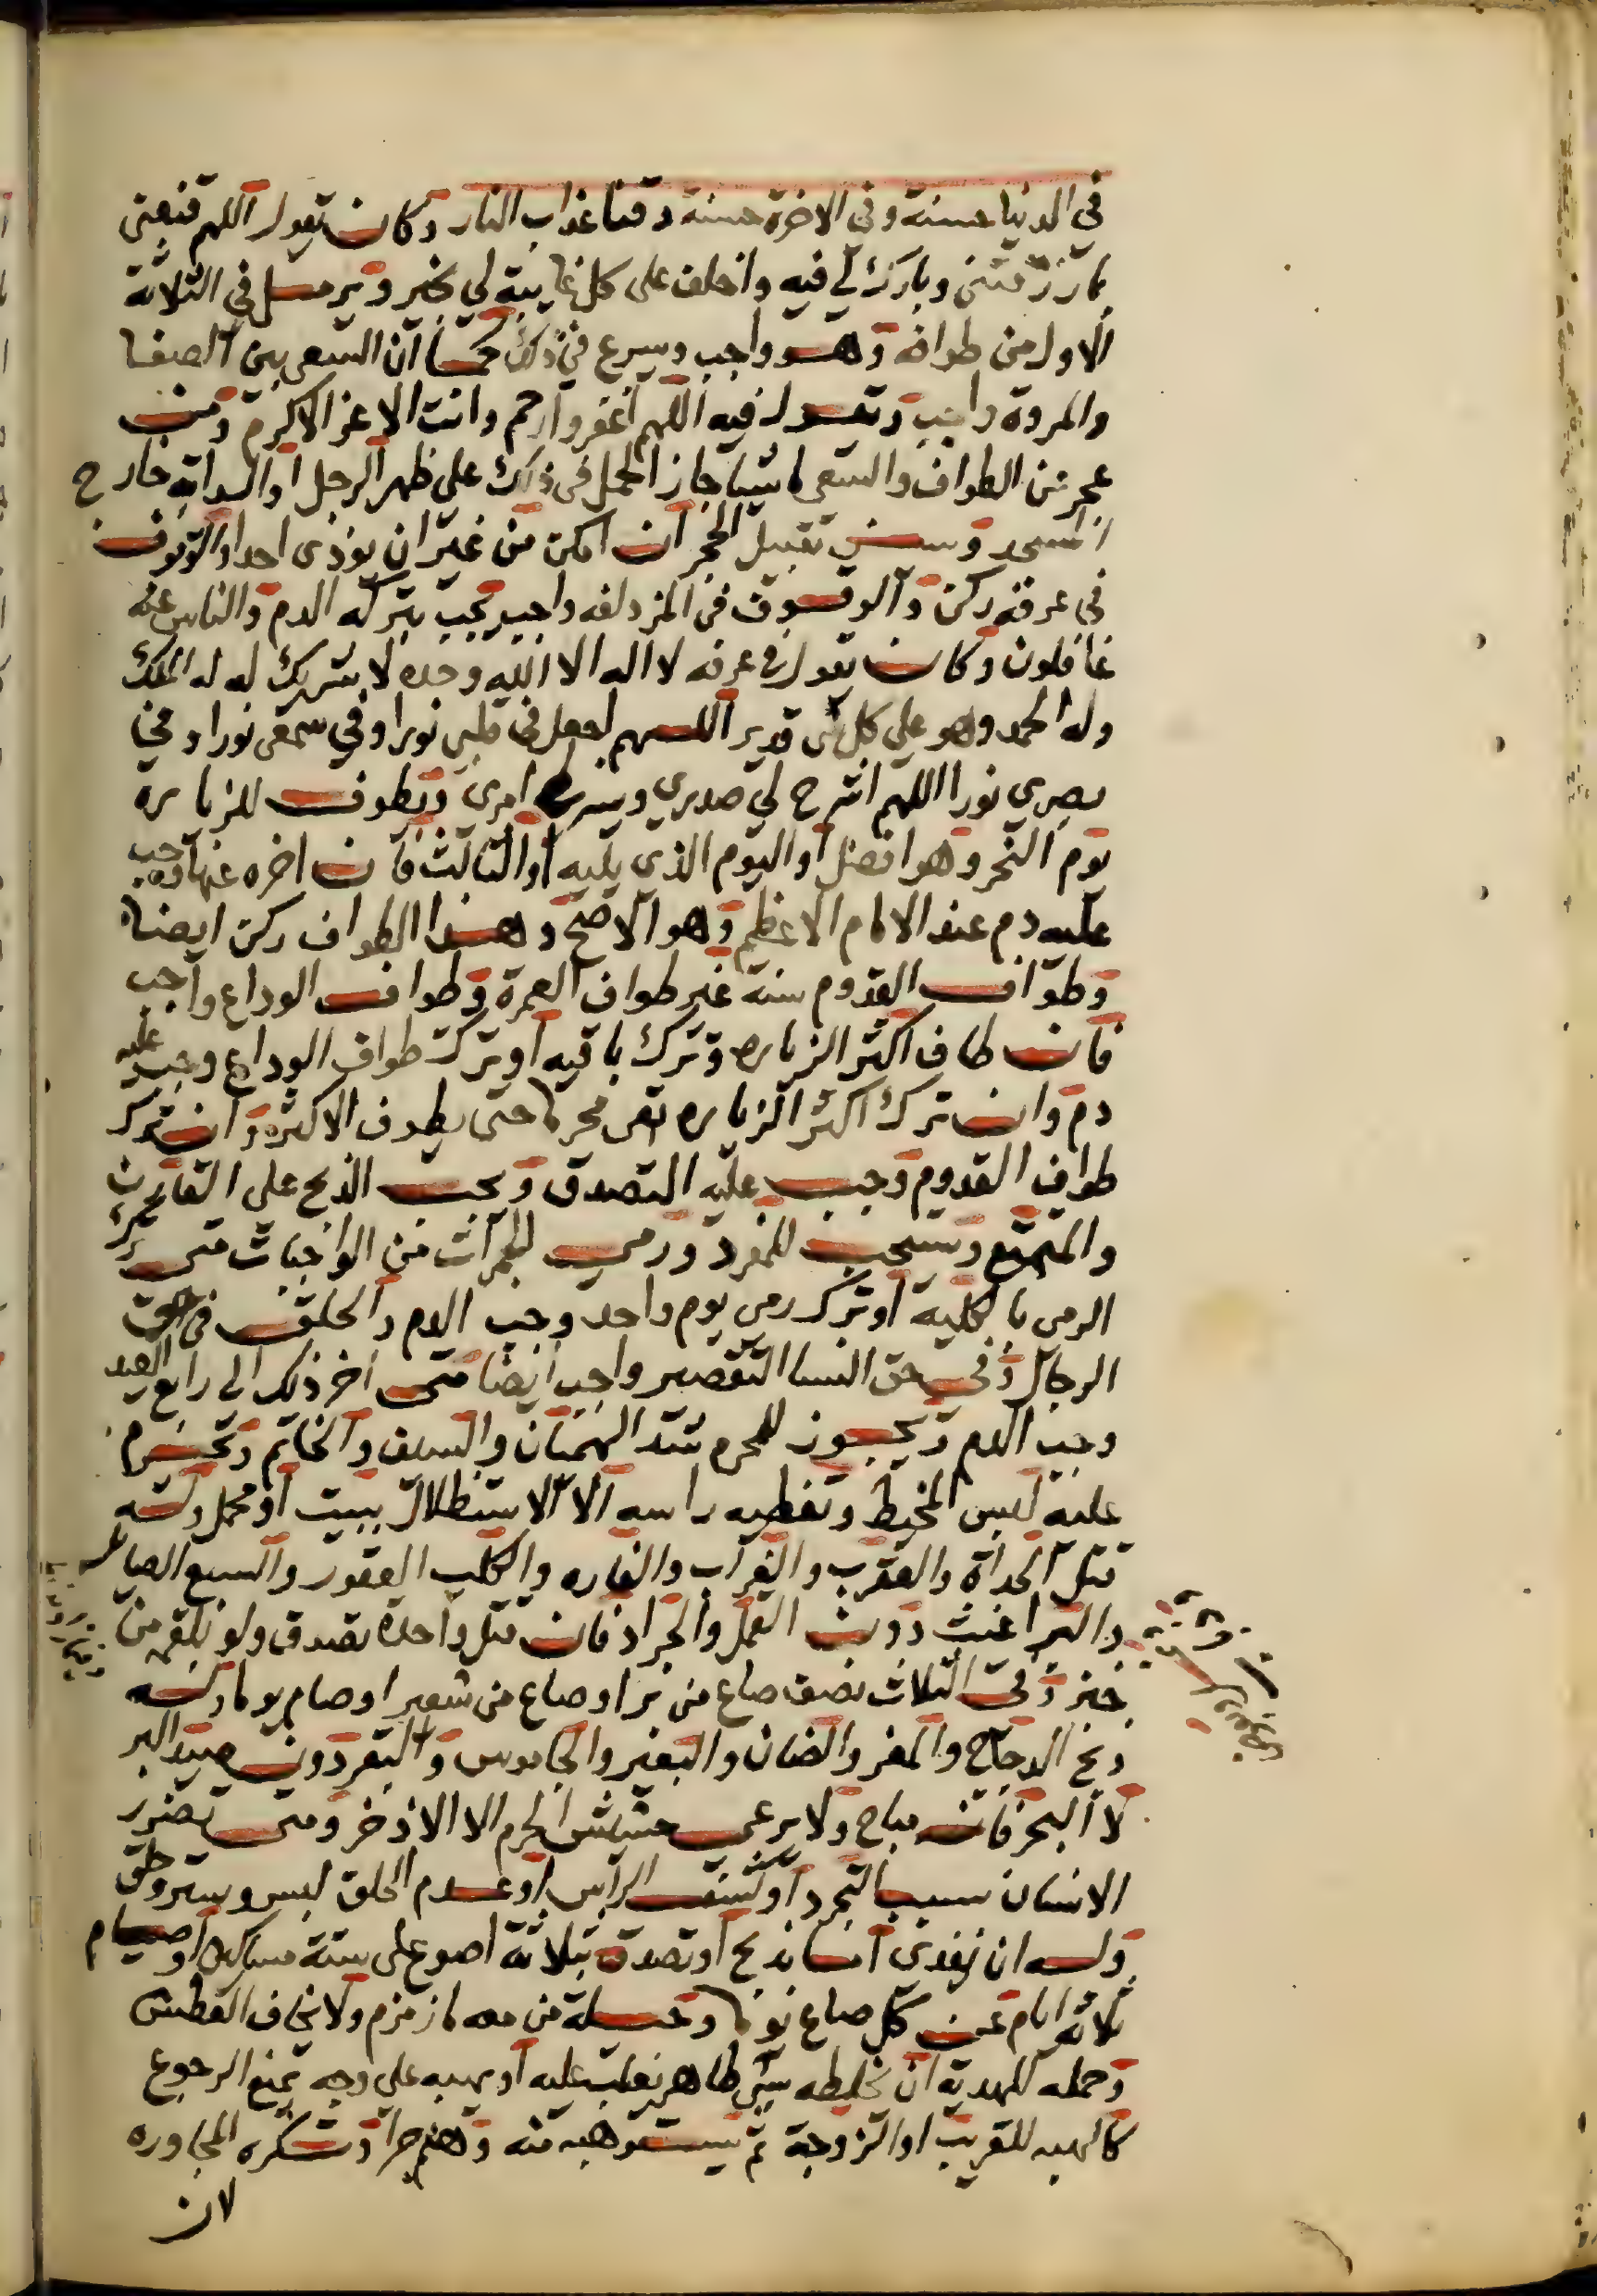 في الدنيا حسنة وفى الاخرة حسنة وقنا عذاب النار وكان يقول اللهم قنعنى
بما رزقتنى وبارك لي فيه واخلف على كل غايبة لي بخير ويرمل في الثلاثة
الاول من طوافه وهو واجب ويسرع في ذلك كما ان السعى بين الصفا
والمروة واجب ويقول فيه اللهم اغفر وارحم وانت الاعز الاكرم ومن
عجز عن الطواف والسعى ماشيا جاز الحمل فى ذلك على ظهر الرجل او الدابه خارج
المسجد ويسن تقبيل الحجر ان امكن من غير ان يوذى احدا والوقوف
فى عرفه ركن والوقوف فى المزدلفه واجب يجب بتركه الدم والناس عنه
غافلون وكان يقول في عرفه لا اله الا الله وحده لا شريك له له الملك
وله الحمد وهو علي كل شى قدير اللهم اجعل فى قلبي نورا وفي سمعى نورا وفي
بصري نورا اللهم اشرح لي صدري ويسر لي امري ويطوف للزياره
يوم النحر وهو افضل او اليوم الذى يليه او الثالث فان اخره عنها وجب
عليه دم عند الامام الاعظم وهو الاصح وهذا الطواف ركن ايضا
وطواف القدوم سنة غير طواف العمرة وطواف الوداع واجب
فان طاف اكثر الزياره وترك باقيه او ترك طواف الوداع وجب عليه
دم وان ترك اكثر الزياره بقى محرما حتى يطوف الاكثره وان ترك
طواف القدوم وجب عليه التصدق ويجب الذبح على القارن
والمتمتع ويستحب للمفرد ورمي الجمرات من الواجبات متى ترك
الرمى بالكلية او ترك رمى يوم واحد وجب الدم والحلق فى حق
الرجال وفي حق النسا التقصير واجب ايضا متى اخر ذلك الى رابع العيد
وجب الدم ويجوز للمحرم شد الهميان والسيف والخاتم ويحرم
عليه لبس المخيط وتغطيه راسه الا الاستظلال ببيت او محمل وله
قتل الحداة والعقرب والغراب والفاره والكلب العقور والسبع الصايل
والبراغيث دون القمل والجراد فان قتل واحدة تصدق ولو بلقمة من
خبز وفى الثلاث نصف صاع من بر او صاع من شعير او صام يوما وله
ذبح الدجاج والمعز والضان والبعير والجاموس والبقر دون صيد البر
لا البحر فانه مباح ولا يرعي حشيش الحرم الا الاذخر ومتى تضرر
الانسان بسبب التجرد او كشف الراس او عدم الحلق لبس وستر وحلق
وله ان يفدى اما بذبح او تصدق بثلاثة اصوع على ستة مساكين او صيام
ثلاثه ايام عن كل صاع يوما وحيلة من معه ما زمزم ولا يخاف العطش
وحمله للهدية ان يخلطه بشى طاهر يغلب عليه او يهبه علي وجه يمنع الرجوع
كالهبه للقريب او الزوجة ثم يستوهبه منه وهلم جرا وتكره المجاوره
لان